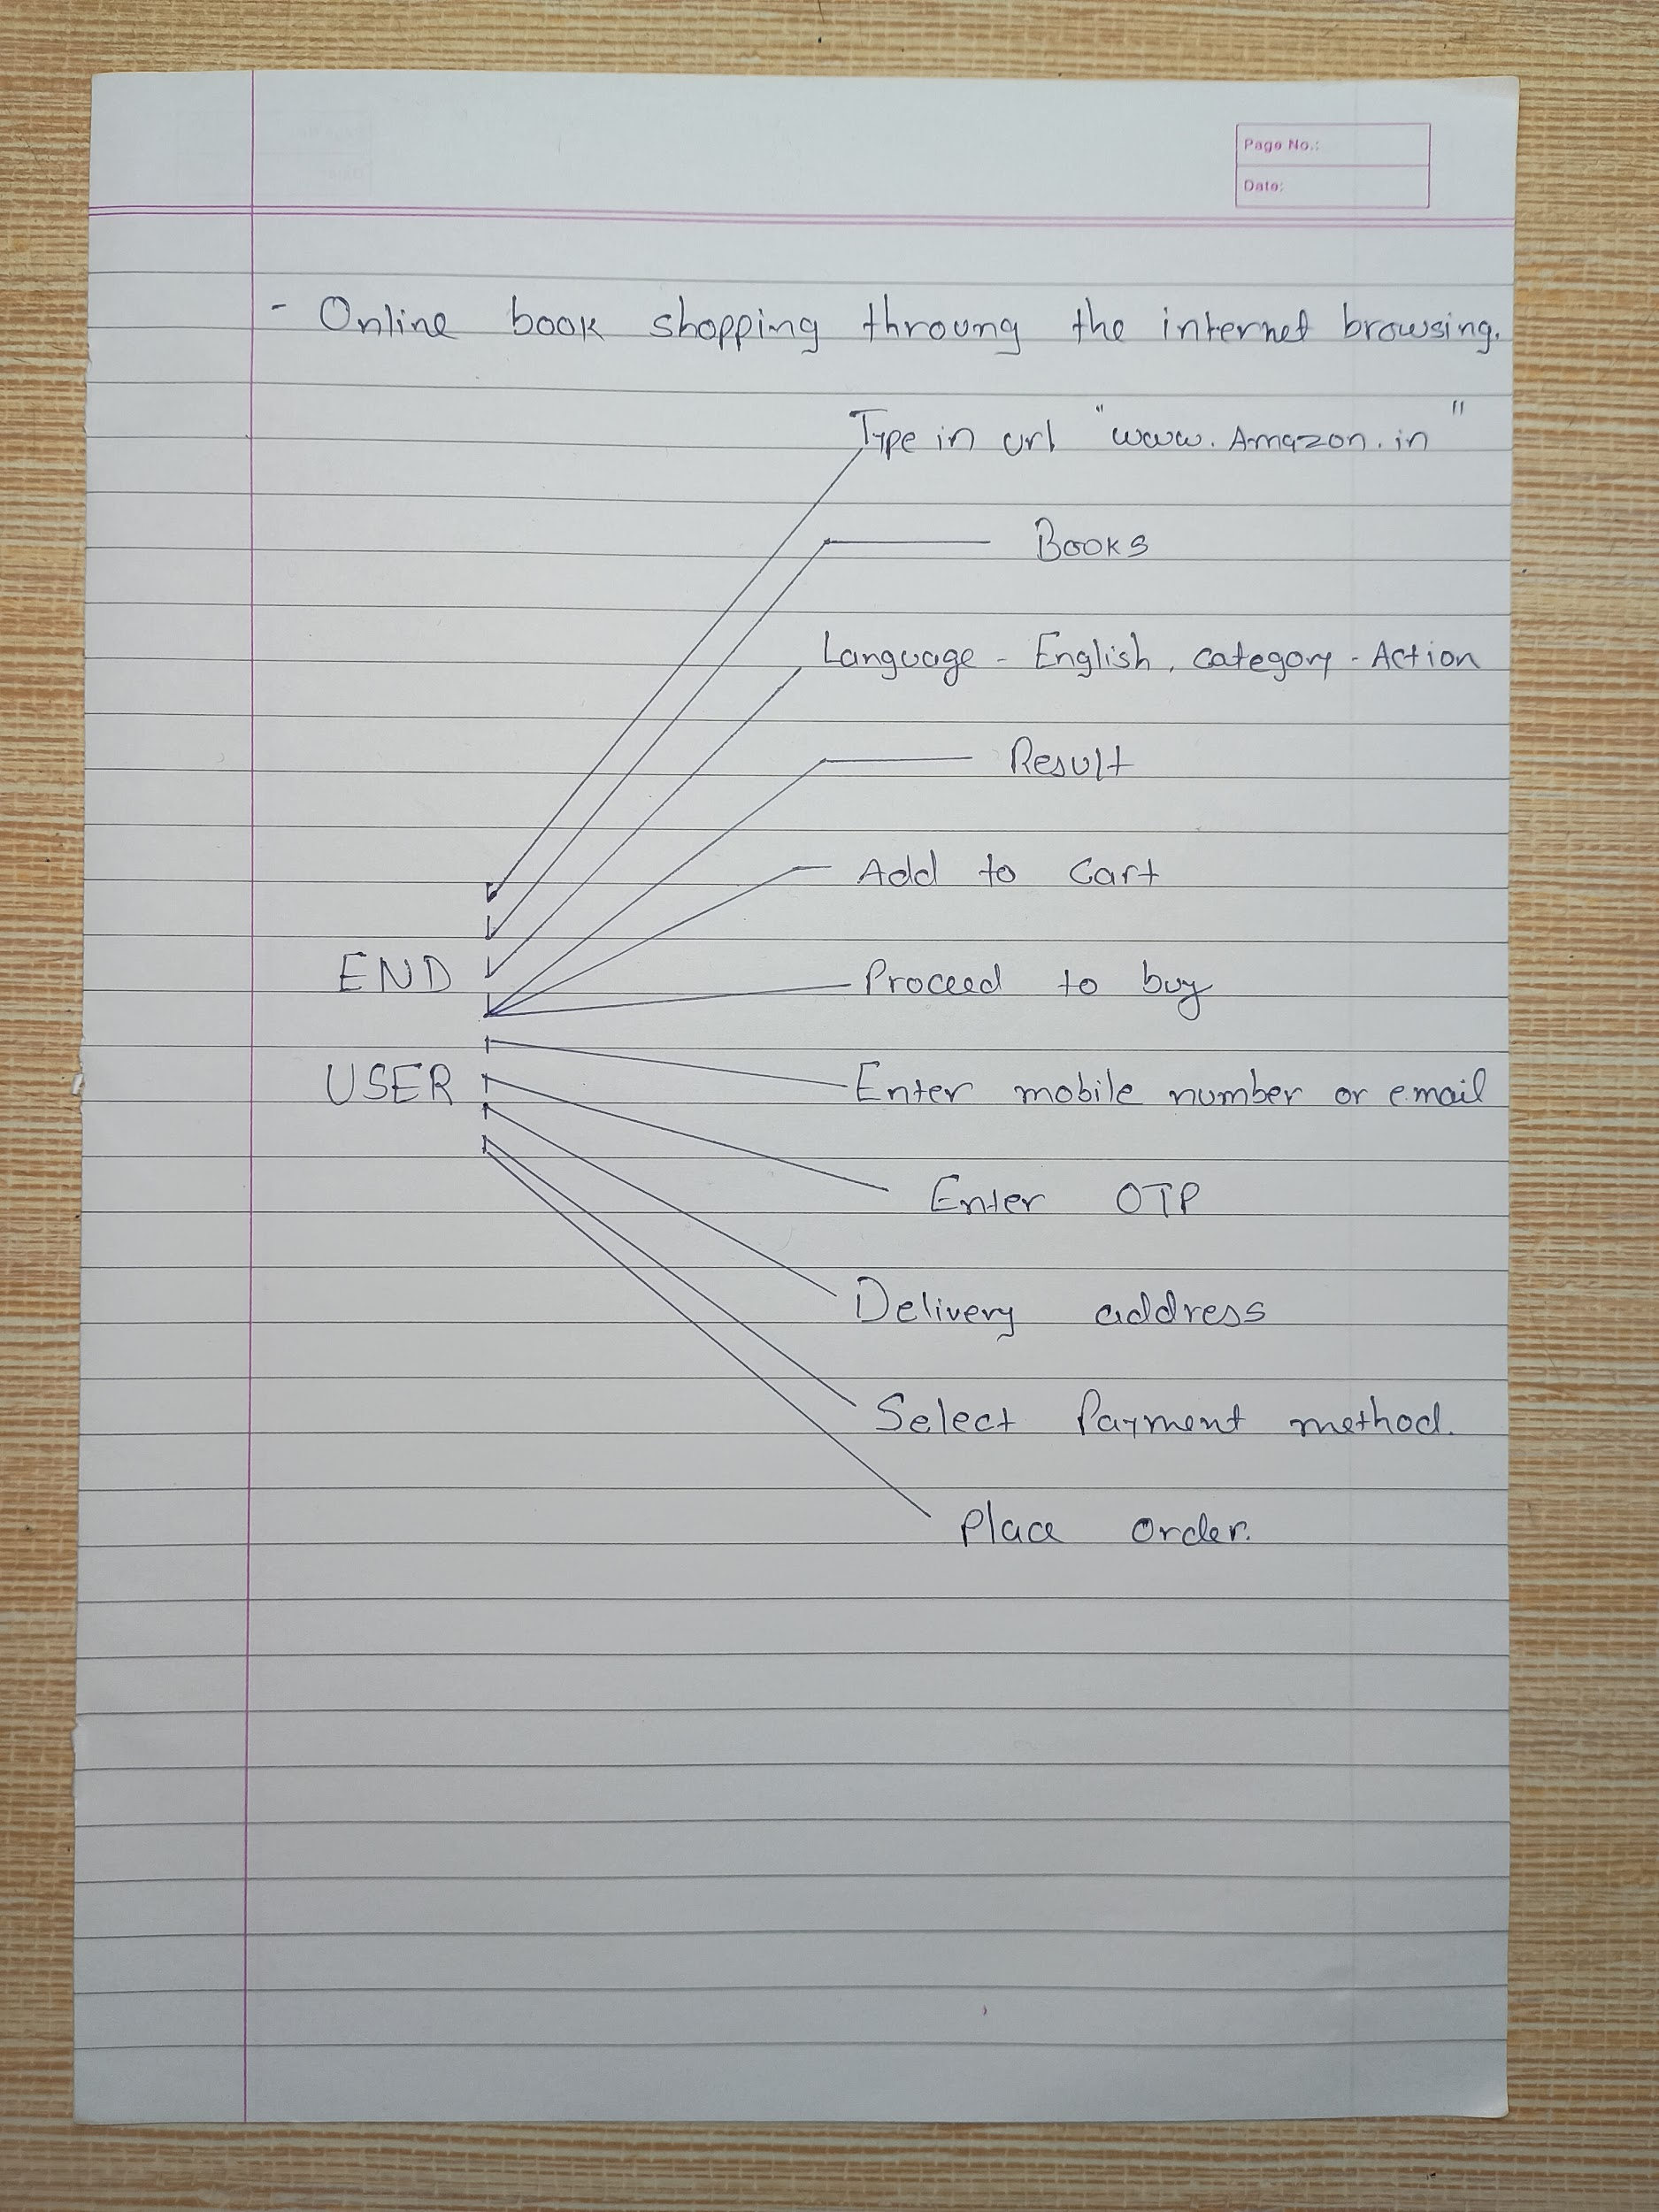 Page No.:
Date:
- Online book shopping throung the internet browsing.
Type in url "www.Amazon.in"
Books
Language - English, category - Action
Result
Add to Cart
END
Proceed to buy
USER
Enter mobile number or email
Enter OTP
Delivery address
Select Payment method.
Place order.